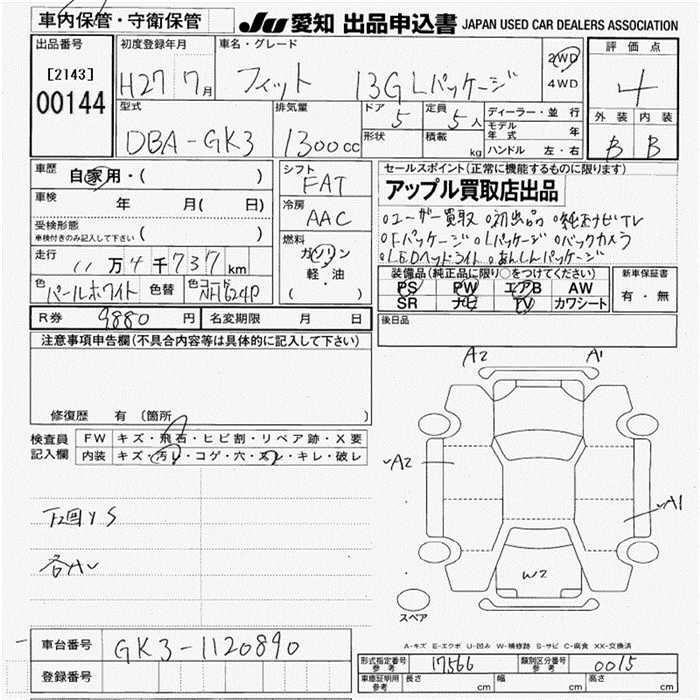 車内保管・守衛保管
JU 愛知 出品申込書 JAPAN USED CAR DEALERS ASSOCIATION
出品番号
[2143]
00144
初度登録年月
H27 7月
車名・グレード
フィット 13G Lパッケージ
2WD
4WD
評価点
4
外装 内装
B B
型式
DBA-GK3
排気量
1300cc
ドア 5
定員 5人
形状
積載 kg
ディーラー・並行
モデル年式 年
ハンドル 左・右
車歴
自家用・( )
車検
年 月( 日)
受検形態
車検付きのみ記入して下さい ( )
走行
11万4千737km
色
パールホワイト
色替
色コード NH624P
シフト
FAT
冷房
AAC
燃料
ガソリン
軽・油
( )
セールスポイント(正常に機能するものに限ります)
アップル買取店出品
○ユーザー買取 ○初出品 ○純正ナビTV
○Fパッケージ ○Lパッケージ ○バックカメラ
○LEDヘッドライト ○あんしんパッケージ
装備品(純正品に限り○をつけてください)
PS PW エアB AW
SR ナビ TV カワシート
新車保証書
有・無
R券 9880円
名変期限 月 日
後日品
注意事項申告欄(不具合内容等は具体的に記入して下さい)
修復歴 有 (箇所 )
検査員
記入欄
FW キズ・飛石・ヒビ割・リペア跡・X要
内装 キズ・汚レ・コゲ・穴・スレ・キレ・破レ
A2 A1
A2
A1
W2
スペア
A-キズ E-エクボ U-凹み W-補修跡 S-サビ C-腐食 XX-交換済
車台番号 GK3-1120890
登録番号
形式指定番号
参考
17566
類別区分番号
参考
0015
車庫証明用
参考
長さ cm
幅 cm
高さ cm